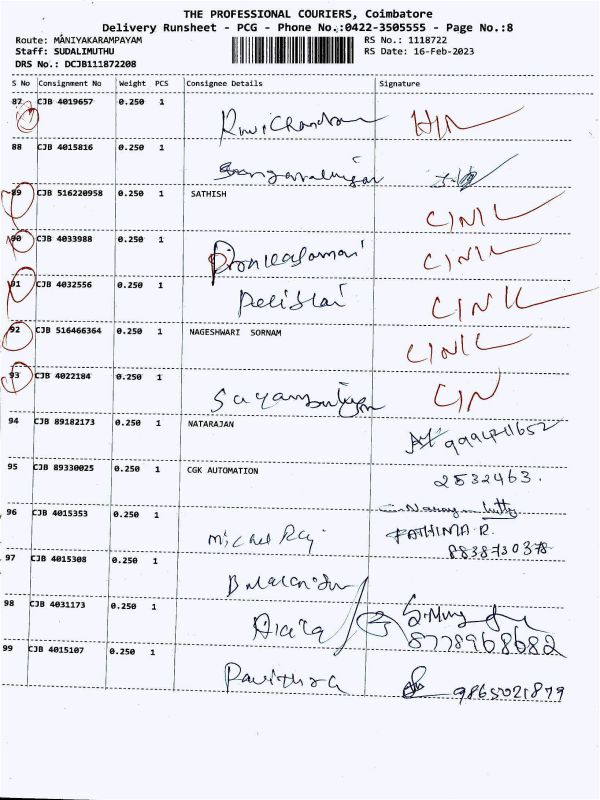 THE PROFESSIONAL COURIERS, Coimbatore
Delivery Runsheet - PCG - Phone No.:0422-3505555 - Page No.:8
Route: MANIYAKARAMPAYAM
RS No.: 1118722
Staff: SUDALIMUTHU
RS Date: 16-Feb-2023
DRS No.: DCJB111872208
S No Consignment No Weight PCS Consignee Details Signature
87 CJB 4019657 0.250 1
Ravichandran
88 CJB 4015816 0.250 1
89 CJB 516220958 0.250 1 SATHISH
C/N/L
90 CJB 4033988 0.250 1
C/N/L
91 CJB 4032556 0.250 1
C/N/L
92 CJB 516466364 0.250 1 NAGESHWARI SORNAM
C/N/L
93 CJB 4022184 0.250 1
C/N
94 CJB 89182173 0.250 1 NATARAJAN
95 CJB 89330025 0.250 1 CGK AUTOMATION
2532463.
96 CJB 4015353 0.250 1
FATHIMA R.
8838730378
97 CJB 4015308 0.250 1
98 CJB 4031173 0.250 1
8778968682
99 CJB 4015107 0.250 1
Pavithra 9865021879